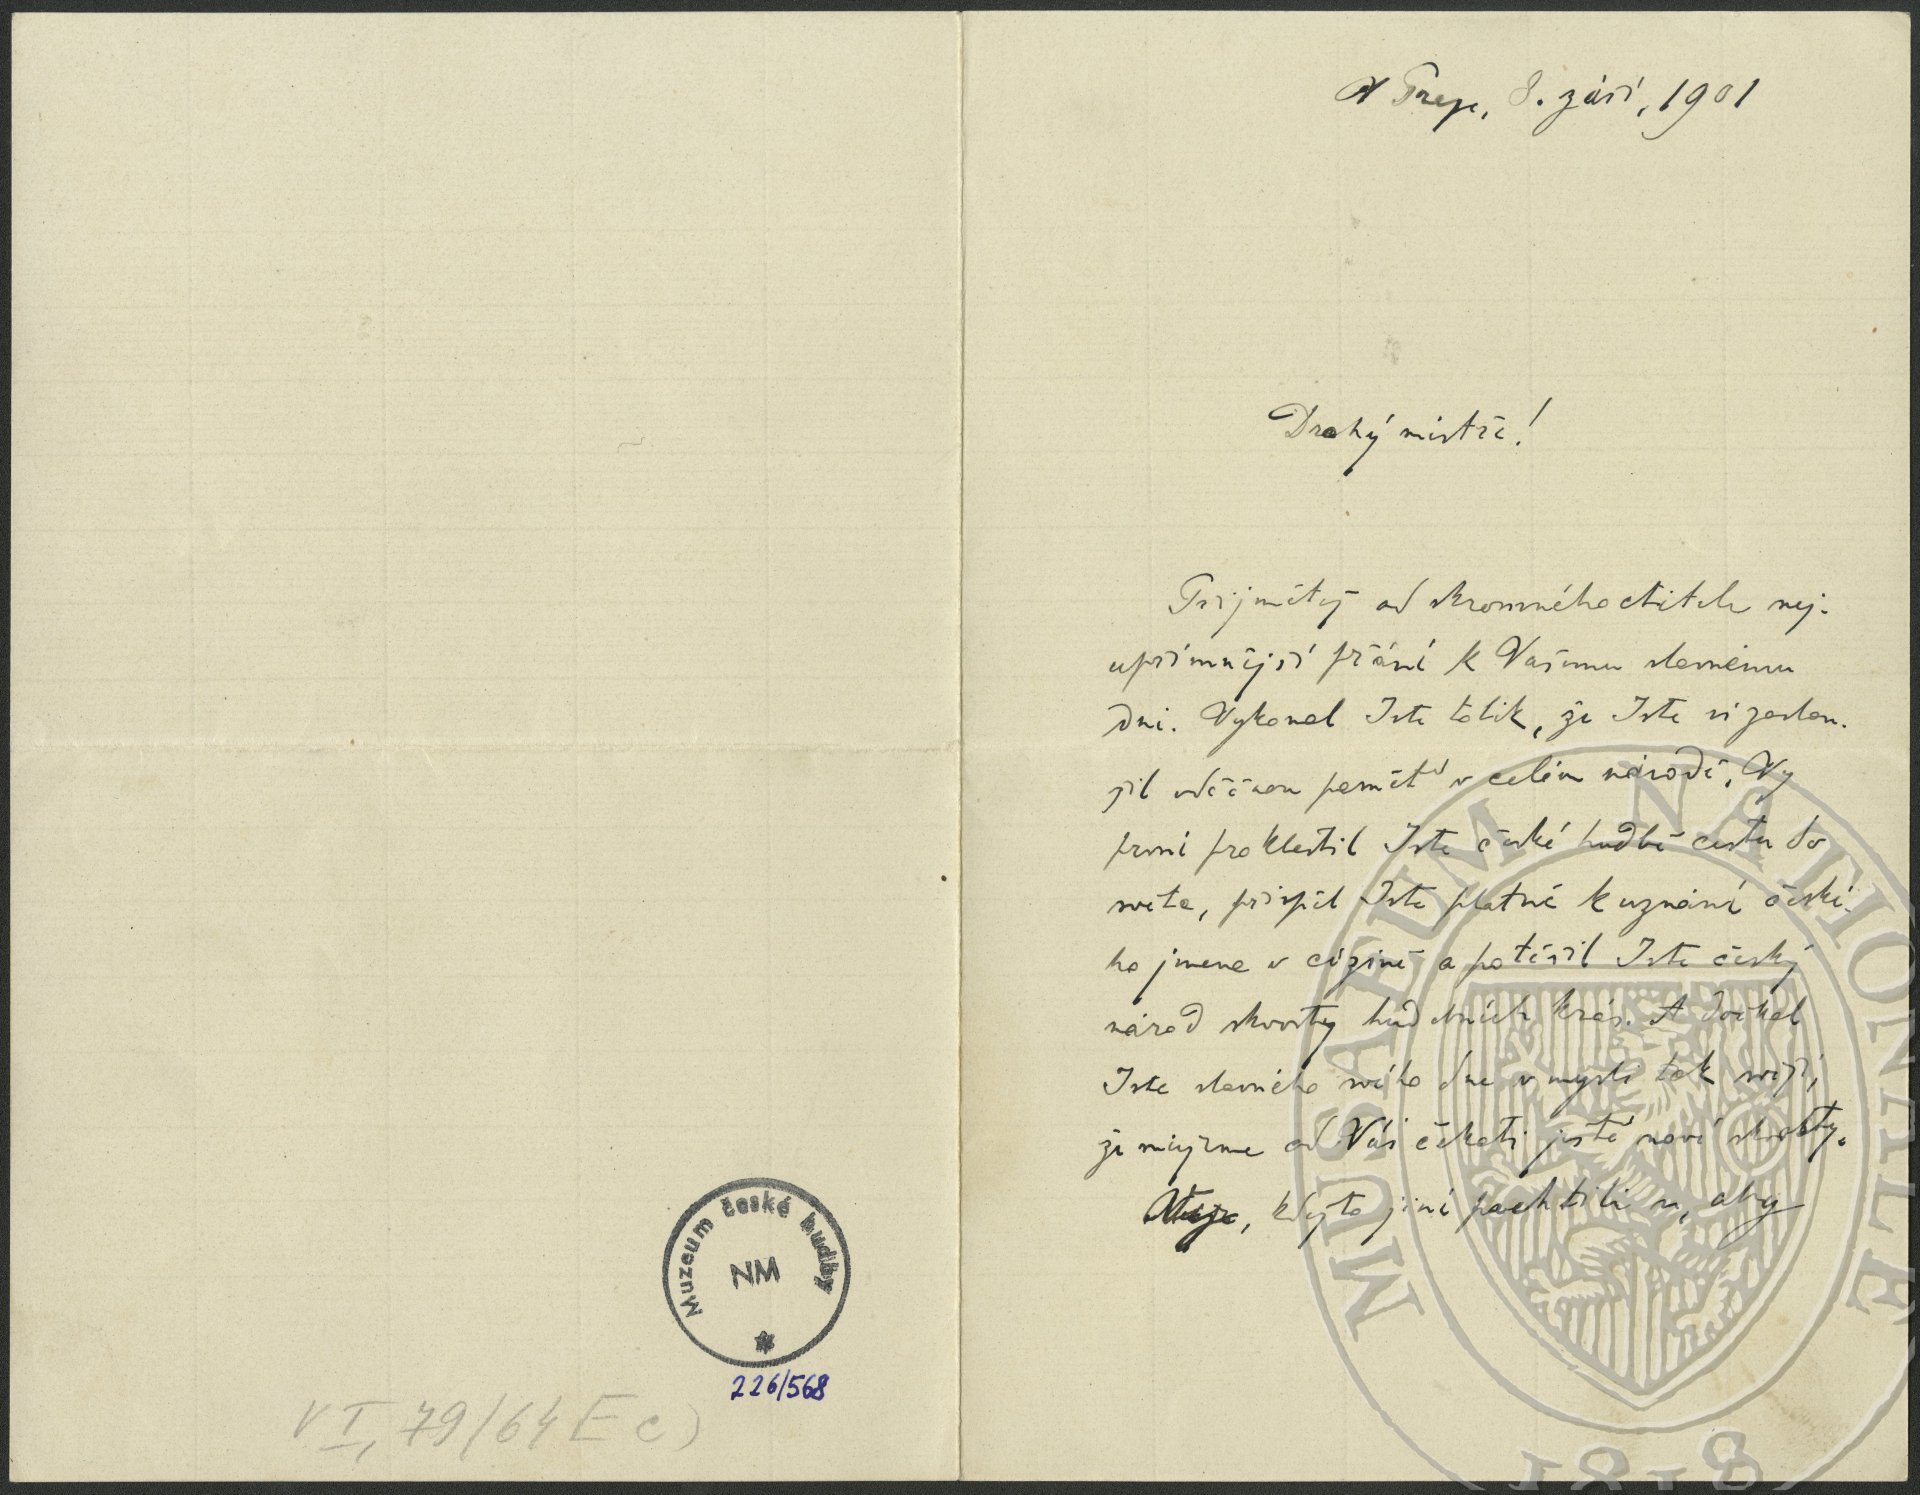 Muzeum české hudby
NM
226/568
VI, 79/64 E c)
V Praze, 8. září, 1901
Drahý mistře!
Přijmětež od skromného ctitele nej-
upřímnější přání k Vašemu slavnému
dni. Vykonal Jste tolik, že Jste si zaslou-
žil vděčnou paměť v celém národě. Vy
první proklestil Jste české hudbě cestu do
světa, přispěl Jste platně k uznání české-
ho jmena v cizině a potěšil Jste český
národ skvosty hudebních krás. A dočkal
Jste slavného svého dne v mysli tak svěží,
že můžeme od Vás čekati ještě nové skvosty.
, kdyžto jiní pachtili se, aby
MUSAEUM NATIONALE
1818